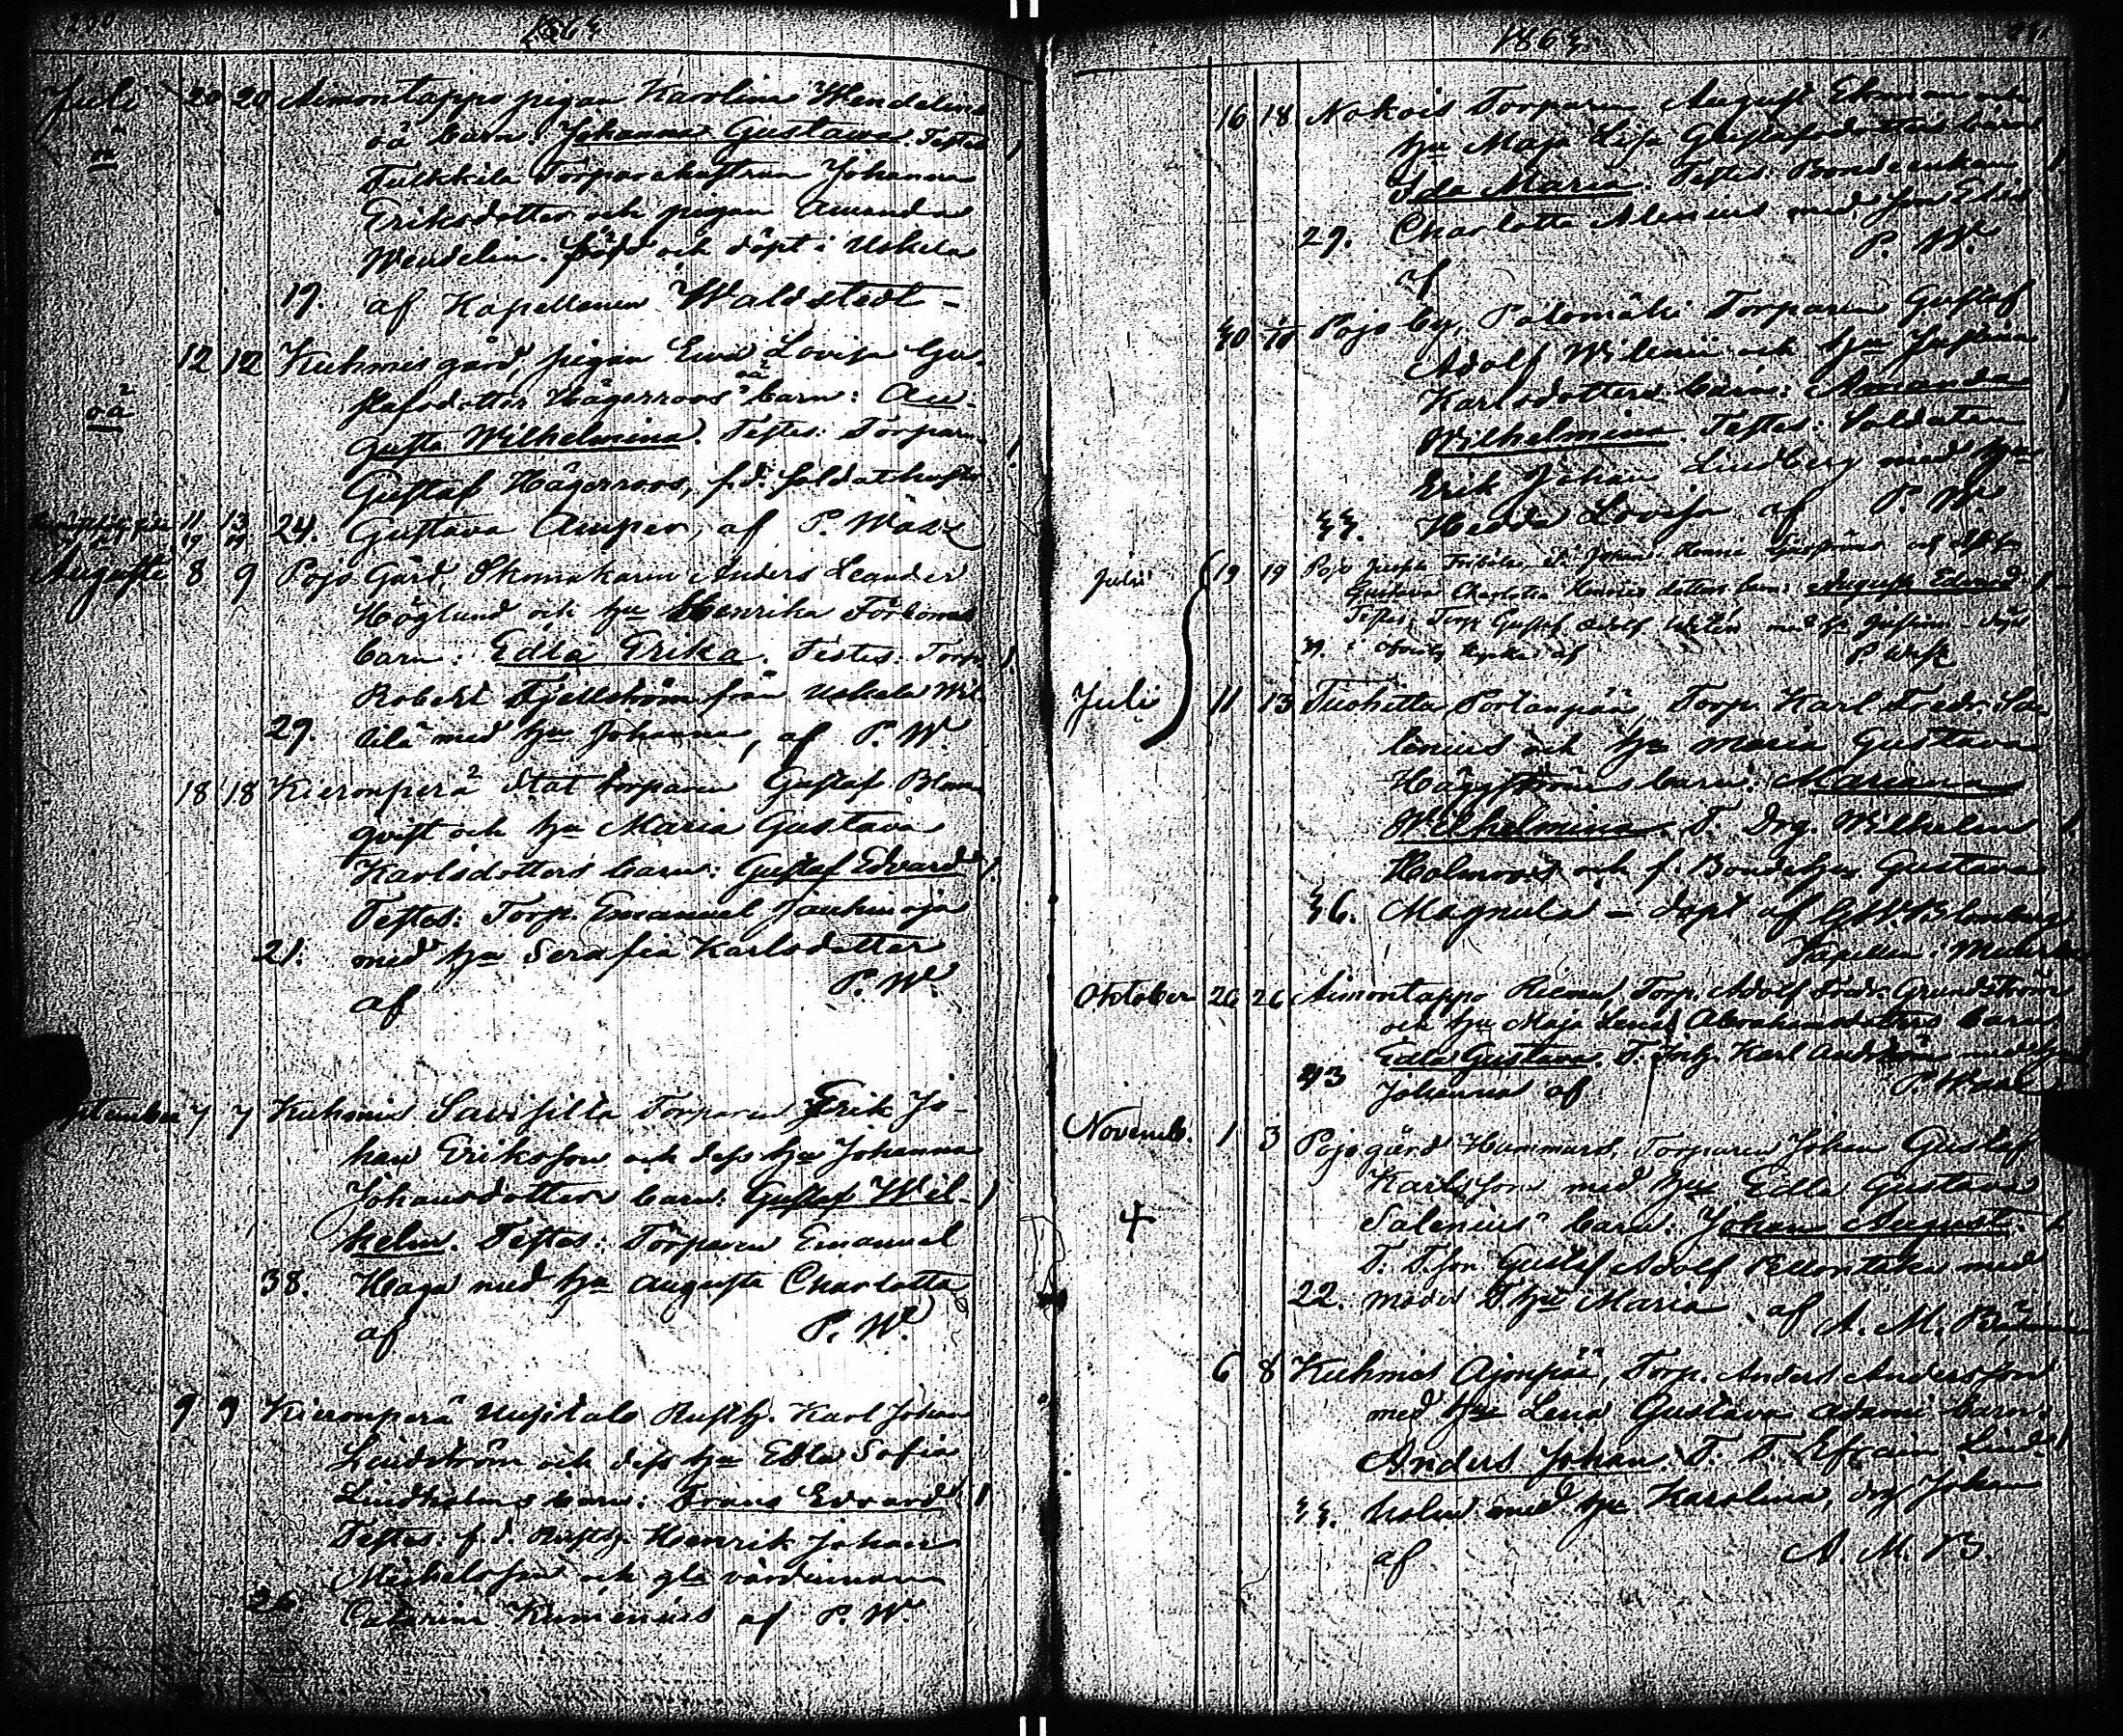 1863
Juli 20 20 Aimontappo pigan Karolina Wendelins
oä barn: Johanna Gustava. Testes
Tulkkila Torparehustrun Johanna
Eriksdotter och pigan Amanda
Wendelin. född och döpt i Uskela
19. af Kapellanen Waldstedt -
12 12 Kuhmis gård, pigan Ewa Lovisa Gu-
oä
stafsdotter Hägerroos oä barn: Au-
gusta Wilhelmina. Testes: Torparen
Gustaf Hägerroos, f.d. soldathustru
11 13 24. Gustava Amper, af P. Wase
19 19
Augusti 8 9 Pojo Gård, Skomakaren Anders Leander
Höglund och hu Henrika Förboms
barn: Edla Erika. Testes: Torp.
Robert Fjellström från Uskela Wil-
29. lilä med hu Johanna, af P. W.
18 18 Kieronperä Stattorparen Gustaf Blom
qvist och hu Maria Gustava
Karlsdotters barn: Gustaf Edvard
Testes: Torp. Emanuel
21. med hu Serafia Karlsdotter
af P. W.
September 7 7 Kuhmis Savisilta Torparen Erik Jo-
han Eriksson och dess hu Johanna
Johansdotters barn: Gustaf Wil-
helm. Testes: Torparen Emanuel
38. Haga med hu Augusta Charlotta
af P. W.
9 9 Kieronperä Uusitalo Rusth. Karl Johan
Lindström och dess hu Edla Sofia
Lindholms barn: Frans Edvard
Testes: f. d. Rusth. Henrik Johan
Michelsson och gla värdinnan
26. Catarina Kumenius af P. W.
1863
16 18 Nokois Torparen August Ekman och
hu Maja Lisa Gustafsdotters barn
Ida Maria. Testes: Bondeenkan
29. Charlotta Alenius med son Elis
af P. W.
30 Pojo by, Palomäki Torparen Gustaf
Adolf Wilenii och hu Justina
Karlsdotters barn: Amanda
Wilhelmina. Testes: Soldaten
Erik Johan Lindberg med hu
33. Hedda Lovisa af P. W.
Julii 19 19 Pojo
Gustava Charlotta Henriksdotters barn: August Edvard
Testes: Torp Gustaf Adolf Wilén med hu Justina - döpt
af P Wase
Juli 11 13 Tuohitta Portanpää, Torp. Karl Fredr. Sa
lenius och hu Maria Gustava
Häggströms barn: Mariana
Wilhelmina. T. Drg. Wilhelm
Holmroos och f. Bondehu Gustava
36. Magnula - döpt af G. W. Blomberg
Kapellan i
Oktober 26 26 Aimontappo Torp. Adolf Fredr. Grundström
och hu Maja Lena Abrahamsdotters barn
Edla Gustava. T. Karl Andström med hu
43 Johanna af P Wase
Novemb. 1 3 Pojo gård Hammars, Torparen Johan Gustaf
Karlsson med hu Edla Gustava
Salenius' barn: Johan August.
T. T.son Gustaf Adolf med
22. moder T hu Maria af A. M.
6 8 Kuhmis Ajonpää, Torp. Anders Andersson
med hu Lena Gustava Adami barn:
Anders Johan. T. T. Efraim Lind
33. holm med hu Karolina, drg Johan
af A. M. B.